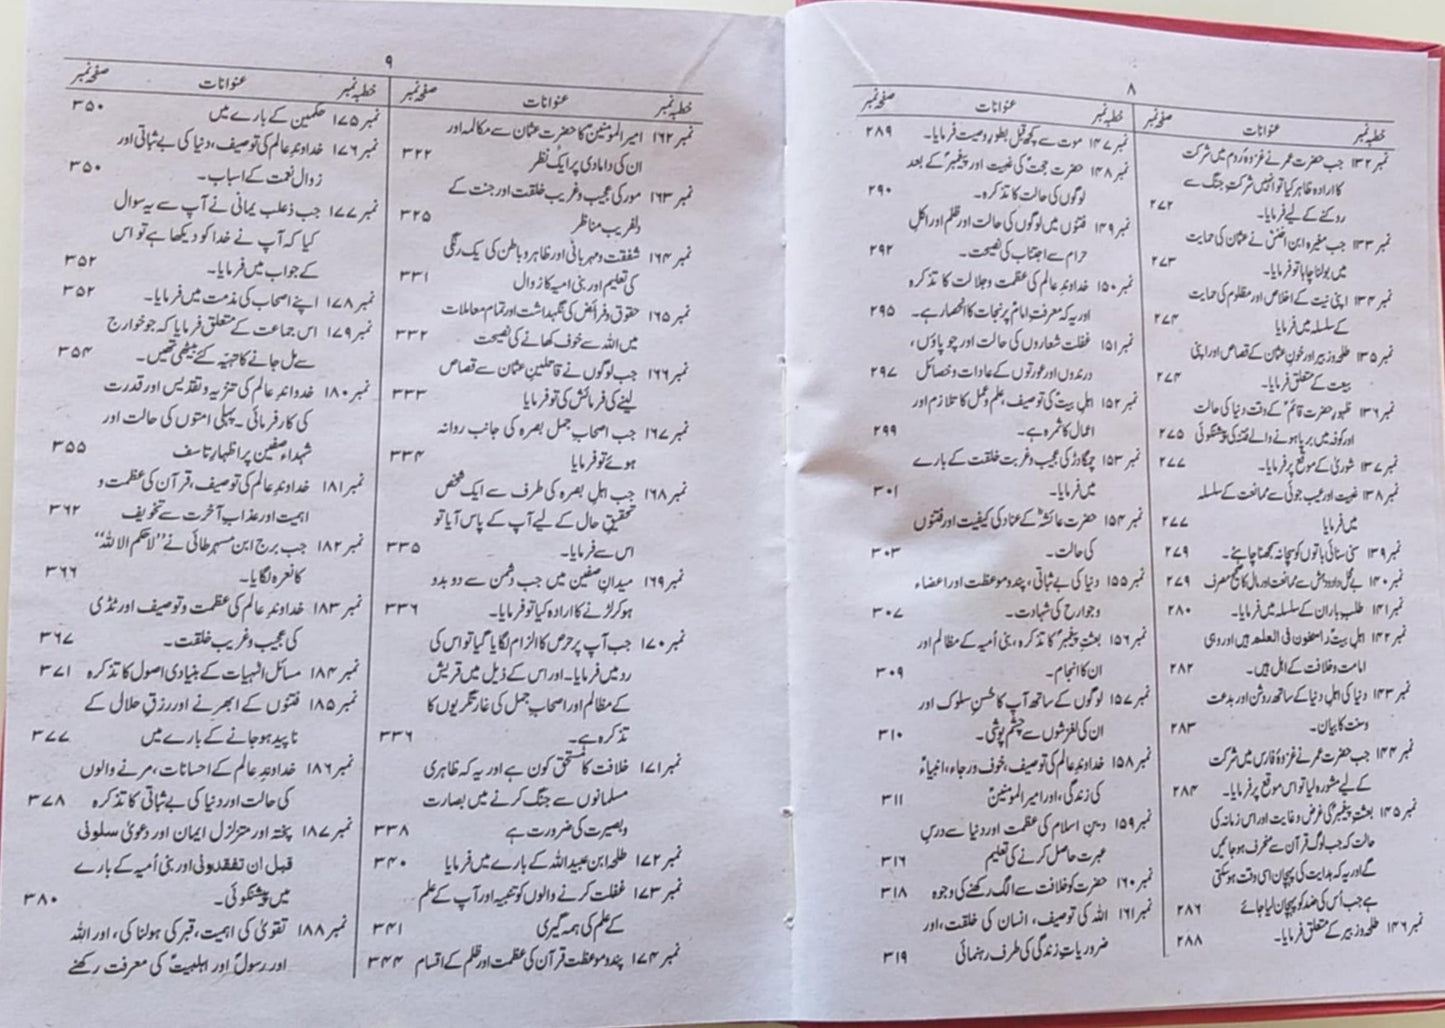 ۸
خطبہ نمبر عنوانات صفحہ نمبر
نمبر ۱۳۲ جب حضرت عمر نے غزوۂ روم میں شرکت
کا ارادہ ظاہر کیا تو انہیں شرکتِ جنگ سے
روکنے کے لیے فرمایا۔ ۲۷۲
نمبر ۱۳۳ جب مغیرہ ابن اخنس نے عثمان کی حمایت
میں بولنا چاہا تو فرمایا۔ ۲۷۳
نمبر ۱۳۴ اپنی نیت کے اخلاص اور مظلوم کی حمایت
کے سلسلہ میں فرمایا ۲۷۴
نمبر ۱۳۵ طلحہ و زبیر اور خونِ عثمان کے قصاص اور اپنی
بیعت کے متعلق فرمایا۔ ۲۷۴
نمبر ۱۳۶ ظہورِ حضرت قائمؑ کے وقت دنیا کی حالت
اور کوفہ میں برپا ہونے والے فتنہ کی پیشنگوئی ۲۷۵
نمبر ۱۳۷ شوریٰ کے موقع پر فرمایا۔ ۲۷۷
نمبر ۱۳۸ غیبت اور عیب جوئی سے ممانعت کے سلسلہ
میں فرمایا ۲۷۷
نمبر ۱۳۹ سنی سنائی باتوں کو سچا نہ سمجھنا چاہئے۔ ۲۷۹
نمبر ۱۴۰ بے محل داد و دہش سے ممانعت اور مال کا صحیح مصرف ۲۷۹
نمبر ۱۴۱ طلبِ باران کے سلسلہ میں فرمایا۔ ۲۸۰
نمبر ۱۴۲ اہلِ بیتؑ راسخون فی العلم ہیں اور وہی
امامت و خلافت کے اہل ہیں۔ ۲۸۲
نمبر ۱۴۳ دنیا کی اہلِ دنیا کے ساتھ روش اور بدعت
و سنت کا بیان۔ ۲۸۳
نمبر ۱۴۴ جب حضرت عمر نے غزوۂ فارس میں شرکت
کے لیے مشورہ لیا تو اس موقع پر فرمایا۔ ۲۸۴
نمبر ۱۴۵ بعثتِ پیغمبرؐ کی غرض و غایت اور اس زمانہ کی
حالت کہ جب لوگ قرآن سے منحرف ہو جائیں
گے اور یہ کہ ہدایت کی پہچان اسی وقت ہو سکتی
ہے جب اُس کی ضد کو پہچان لیا جائے ۲۸۶
نمبر ۱۴۶ طلحہ و زبیر کے متعلق فرمایا۔ ۲۸۸
خطبہ نمبر عنوانات صفحہ نمبر
نمبر ۱۴۷ موت سے کچھ قبل بطورِ وصیت فرمایا۔ ۲۸۹
نمبر ۱۴۸ حضرت حجتؑ کی غیبت اور پیغمبرؐ کے بعد
لوگوں کی حالت کا تذکرہ۔ ۲۹۰
نمبر ۱۴۹ فتنوں میں لوگوں کی حالت اور ظلم اور اکلِ
حرام سے اجتناب کی نصیحت۔ ۲۹۲
نمبر ۱۵۰ خداوندِ عالم کی عظمت و جلالت کا تذکرہ
اور یہ کہ معرفتِ امامؑ پر نجات کا انحصار ہے۔ ۲۹۵
نمبر ۱۵۱ غفلت شعاروں کی حالت اور چوپاؤں،
درندوں اور عورتوں کے عادات و خصائل ۲۹۷
نمبر ۱۵۲ اہلِ بیتؑ کی توصیف، علم و عمل کا تلازم اور
اعمال کا ثمرہ ہے۔ ۲۹۹
نمبر ۱۵۳ چمگادڑ کی عجیب و غربت خلقت کے بارے
میں فرمایا۔ ۳۰۱
نمبر ۱۵۴ حضرت عائشہؓ کے عناد کی کیفیت اور فتنوں
کی حالت۔ ۳۰۳
نمبر ۱۵۵ دنیا کی بے ثباتی، پند و موعظت اور اعضاء
و جوارح کی شہادت۔ ۳۰۷
نمبر ۱۵۶ بعثتِ پیغمبرؐ کا تذکرہ، بنی اُمیہ کے مظالم اور
ان کا انجام۔ ۳۰۹
نمبر ۱۵۷ لوگوں کے ساتھ آپ کا حُسنِ سلوک اور
ان کی لغزشوں سے چشم پوشی۔ ۳۱۰
نمبر ۱۵۸ خداوندِ عالم کی توصیف، خوف و رجاء، انبیاءؑ
کی زندگی، اور امیر المومنینؑ ۳۱۱
نمبر ۱۵۹ دینِ اسلام کی عظمت اور دنیا سے درسِ
عبرت حاصل کرنے کی تعلیم ۳۱۶
نمبر ۱۶۰ حضرت کو خلافت سے الگ رکھنے کی وجوہ ۳۱۸
نمبر ۱۶۱ اللہ کی توصیف، انسان کی خلقت، اور
ضروریاتِ زندگی کی طرف رہنمائی ۳۱۹
۹
خطبہ نمبر عنوانات صفحہ نمبر
نمبر ۱۶۲ امیر المومنینؑ کا حضرت عثمان سے مکالمہ اور
ان کی دامادی پر ایک نظر ۳۲۲
نمبر ۱۶۳ مور کی عجیب و غریب خلقت اور جنت کے
دلفریب مناظر ۳۲۵
نمبر ۱۶۴ شفقت و مہربانی اور ظاہر و باطن کی یک رنگی
کی تعلیم اور بنی امیہ کا زوال ۳۳۱
نمبر ۱۶۵ حقوق و فرائض کی نگہداشت اور تمام معاملات
میں اللہ سے خوف کھانے کی نصیحت ۳۳۲
نمبر ۱۶۶ جب لوگوں نے قاتلینِ عثمان سے قصاص
لینے کی فرمائش کی تو فرمایا ۳۳۳
نمبر ۱۶۷ جب اصحابِ جمل بصرہ کی جانب روانہ
ہوئے تو فرمایا ۳۳۴
نمبر ۱۶۸ جب اہلِ بصرہ کی طرف سے ایک شخص
تحقیقِ حال کے لیے آپ کے پاس آیا تو
اس سے فرمایا۔ ۳۳۵
نمبر ۱۶۹ میدانِ صفین میں جب دشمن سے دو بدو
ہو کر لڑنے کا ارادہ کیا تو فرمایا۔ ۳۳۶
نمبر ۱۷۰ جب آپ پر حرص کا الزام لگایا گیا تو اس کی
رد میں فرمایا۔ اور اس کے ذیل میں قریش
کے مظالم اور اصحابِ جمل کی غارتگریوں کا
تذکرہ ہے۔ ۳۳۶
نمبر ۱۷۱ خلافت کا مستحق کون ہے اور یہ کہ ظاہری
مسلمانوں سے جنگ کرنے میں بصارت
و بصیرت کی ضرورت ہے ۳۳۸
نمبر ۱۷۲ طلحہ ابن عبید اللہ کے بارے میں فرمایا ۳۴۰
نمبر ۱۷۳ غفلت کرنے والوں کو تنبیہ اور آپ کے علم
کے علم کی ہمہ گیری ۳۴۱
نمبر ۱۷۴ پند و موعظت قرآن کی عظمت اور ظلم کے اقسام ۳۴۴
خطبہ نمبر عنوانات صفحہ نمبر
نمبر ۱۷۵ حکمین کے بارے میں ۳۵۰
نمبر ۱۷۶ خداوندِ عالم کی توصیف، دنیا کی بے ثباتی اور
زوالِ نعمت کے اسباب۔ ۳۵۰
نمبر ۱۷۷ جب ذعلب یمانی نے آپ سے یہ سوال
کیا کہ آپ نے خدا کو دیکھا ہے تو اس
کے جواب میں فرمایا۔ ۳۵۲
نمبر ۱۷۸ اپنے اصحاب کی مذمت میں فرمایا۔ ۳۵۲
نمبر ۱۷۹ اس جماعت کے متعلق فرمایا کہ جو خوارج
سے مل جانے کا تہیہ کئے بیٹھی تھیں۔ ۳۵۴
نمبر ۱۸۰ خداوندِ عالم کی تنزیہ و تقدیس اور قدرت
کی کارفرمائی۔ پہلی امتوں کی حالت اور
شہداءِ صفین پر اظہارِ تاسف ۳۵۵
نمبر ۱۸۱ خداوندِ عالم کی توصیف، قرآن کی عظمت و
اہمیت اور عذابِ آخرت سے تخویف ۳۶۲
نمبر ۱۸۲ جب برج ابن مسہر طائی نے ”لا حکم الا للہ“
کا نعرہ لگایا۔ ۳۶۶
نمبر ۱۸۳ خداوندِ عالم کی عظمت و توصیف اور ٹڈی
کی عجیب و غریب خلقت۔ ۳۶۷
نمبر ۱۸۴ مسائل الٰہیات کے بنیادی اصول کا تذکرہ ۳۷۱
نمبر ۱۸۵ فتنوں کے ابھرنے اور رزقِ حلال کے
ناپید ہو جانے کے بارے میں ۳۷۷
نمبر ۱۸۶ خداوندِ عالم کے احسانات، مرنے والوں
کی حالت اور دنیا کی بے ثباتی کا تذکرہ ۳۷۸
نمبر ۱۸۷ پختہ اور متزلزل ایمان اور دعویٰ سلونی
قبل ان تفقدونی اور بنی اُمیہ کے بارے
میں پیشنگوئی۔ ۳۸۰
نمبر ۱۸۸ تقویٰ کی اہمیت، قبر کی ہولناکی، اور اللہ
اور رسولؐ اور اہلبیتؑ کی معرفت رکھنے